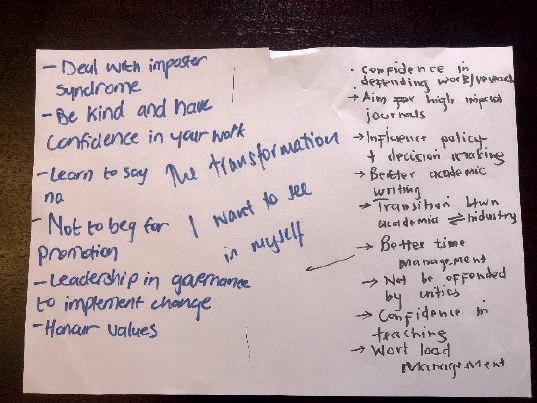 - Deal with imposter
syndrome
- Be kind and have
confidence in your work
- Learn to say
no
- Not to beg for
promotion
- Leadership in governance
to implement change
- Honour values
The transformation
I want to see
in myself
· Confidence in
defending work/research
→ Aim for high impact
journals
→ Influence policy
+ decision making
→ Better academic
writing
→ Transition btwn
academia ⇌ industry
→ Better time
management
→ Not be offended
by critics
→ Confidence in
teaching
→ Work load
management